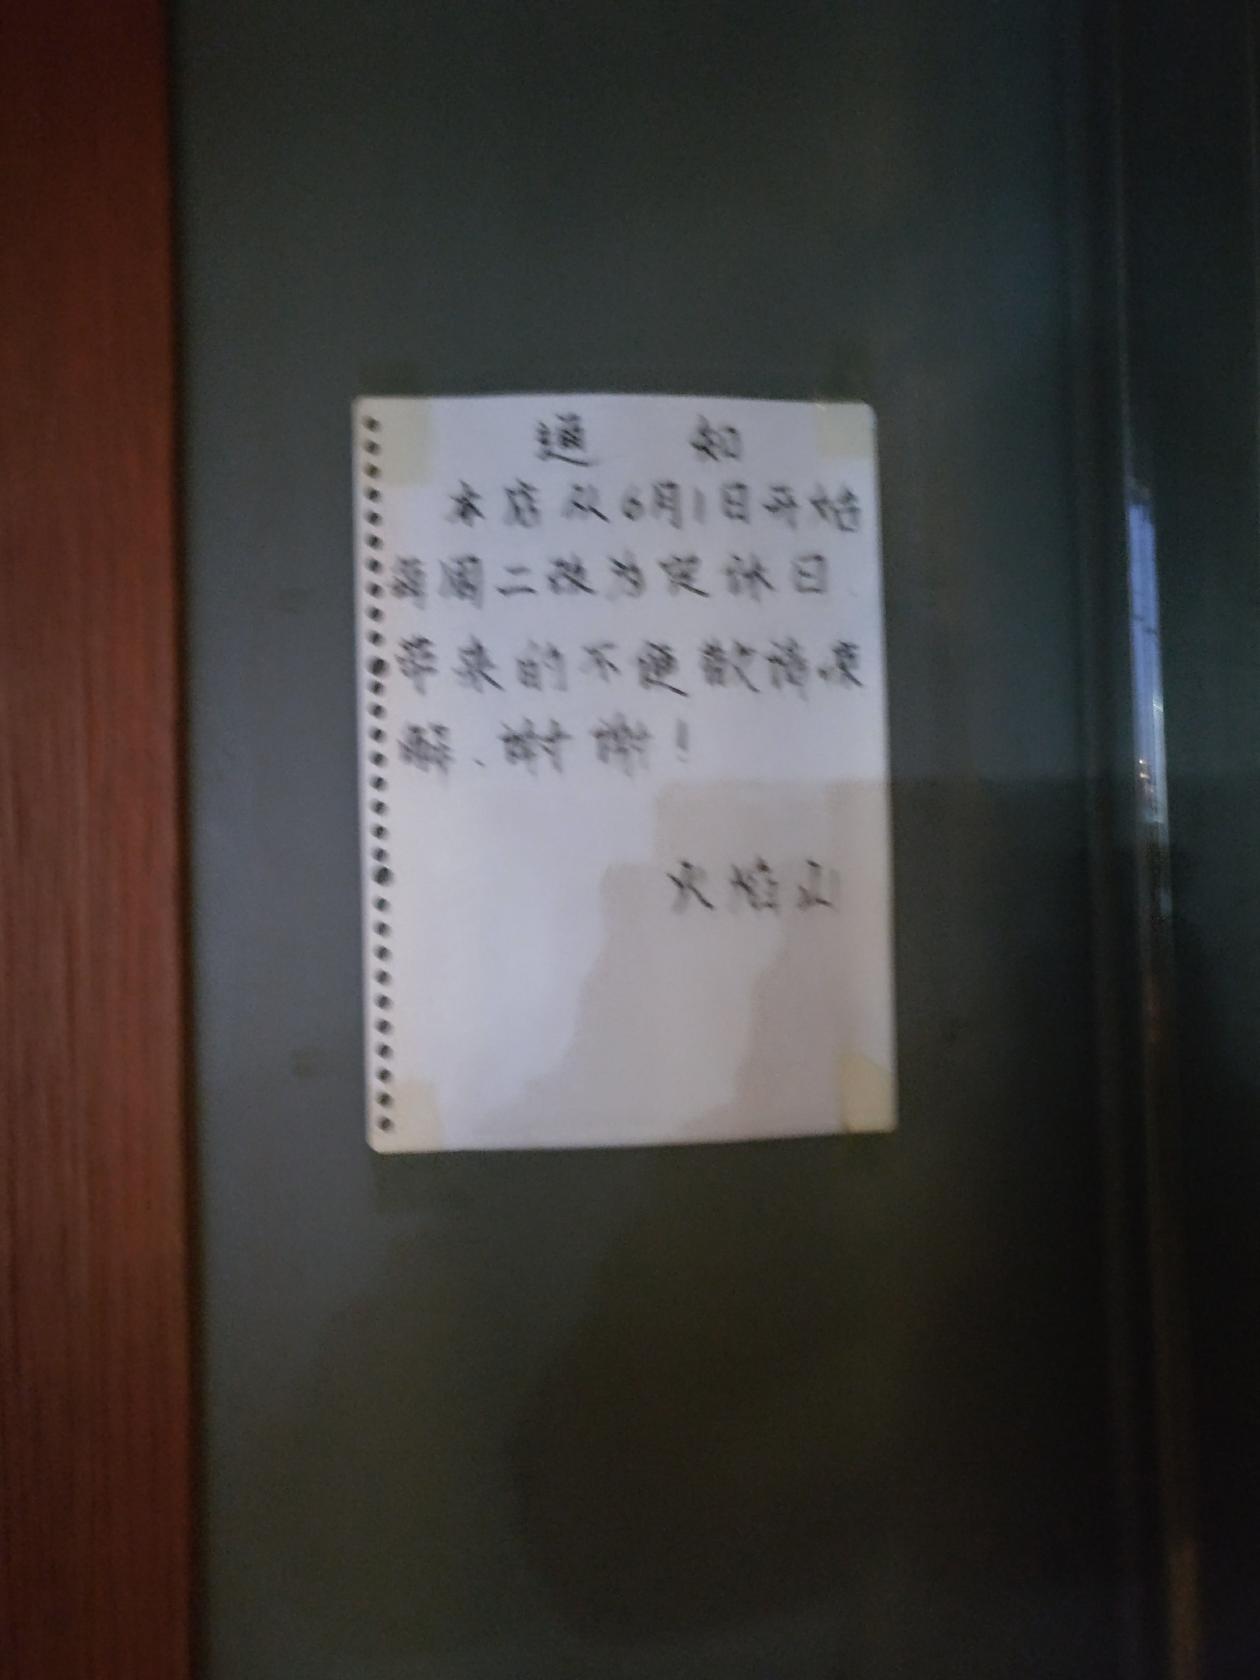 通 知
本店从6月1日开始
每周二改为定休日.
带来的不便敬请凉
解.谢谢!
火焰山